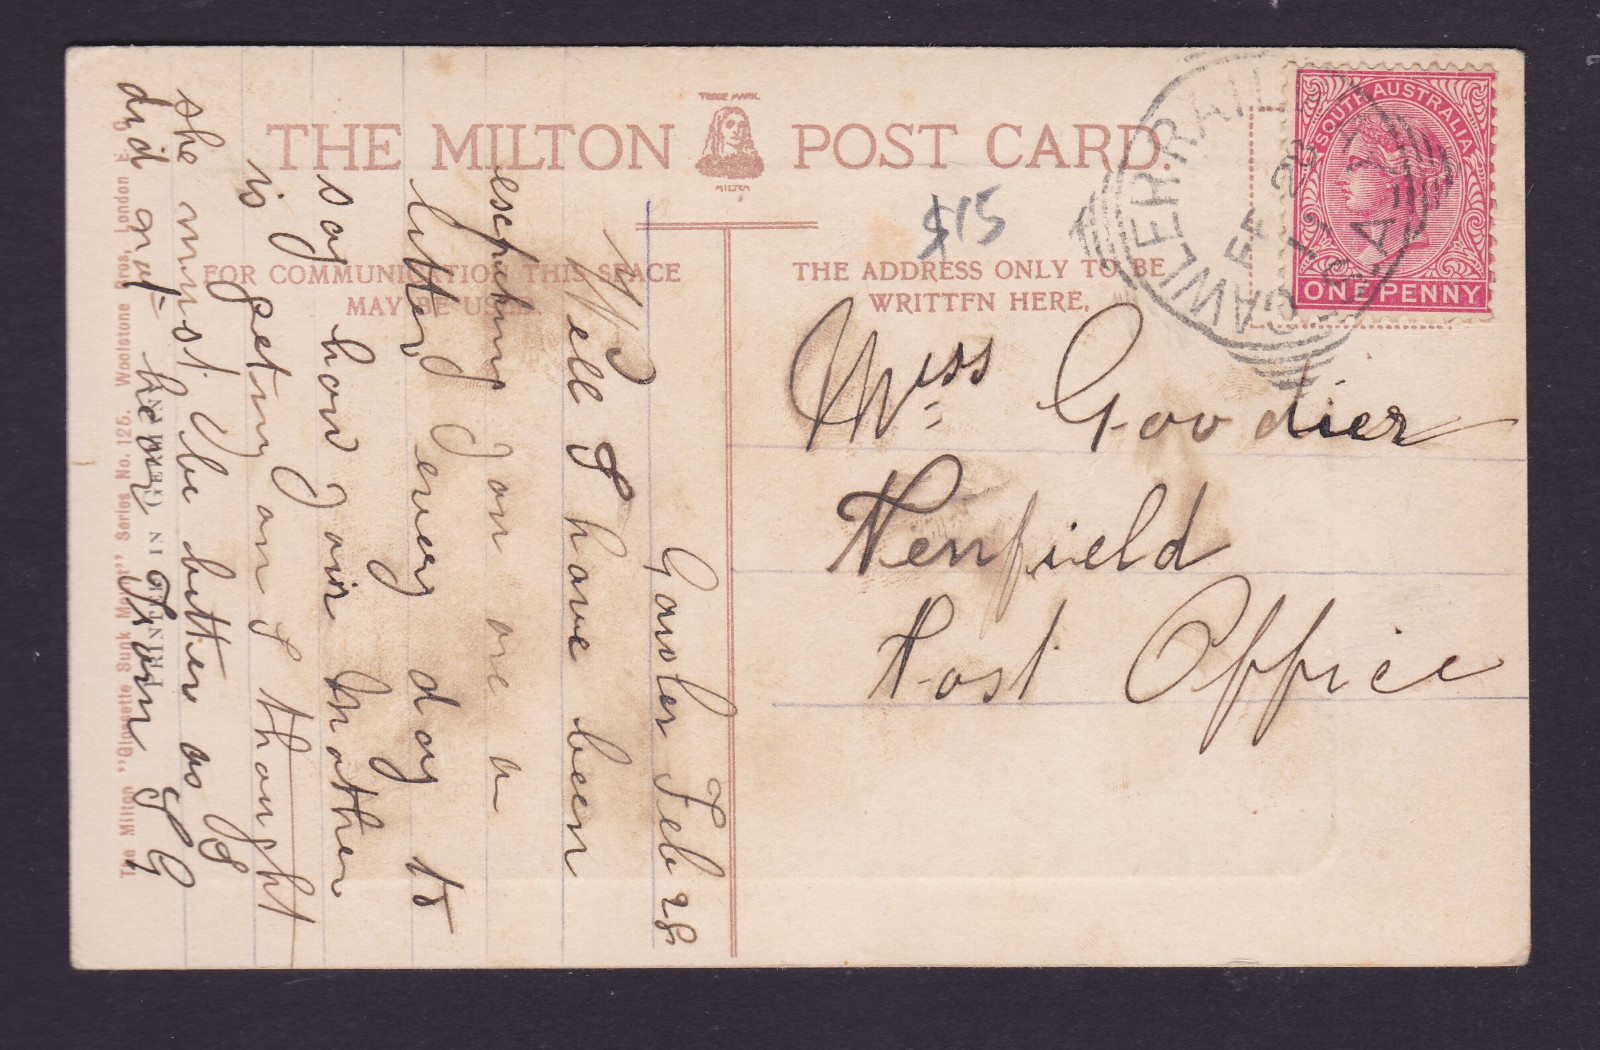 TRADE MARK.
THE MILTON POST CARD.
MILTON
$15
FOR COMMUNICATION THIS SPACE
MAY BE USED.
THE ADDRESS ONLY TO BE
WRITTEN HERE.
SOUTH AUSTRALIA
ONE PENNY
GAWLER RAIL
FE 28
S.A
Miss Goodier
Penfield
Post Office
Gawler Feb 28
Well I have been
especting you are a
letter every day to
say how yoir Mother
is geting on I thought
she must be better as I
did not hear From
G
The Milton "Glossette Sunk Mount" Series No. 125. Woolstone Bros., London E.C.
PRINTED IN